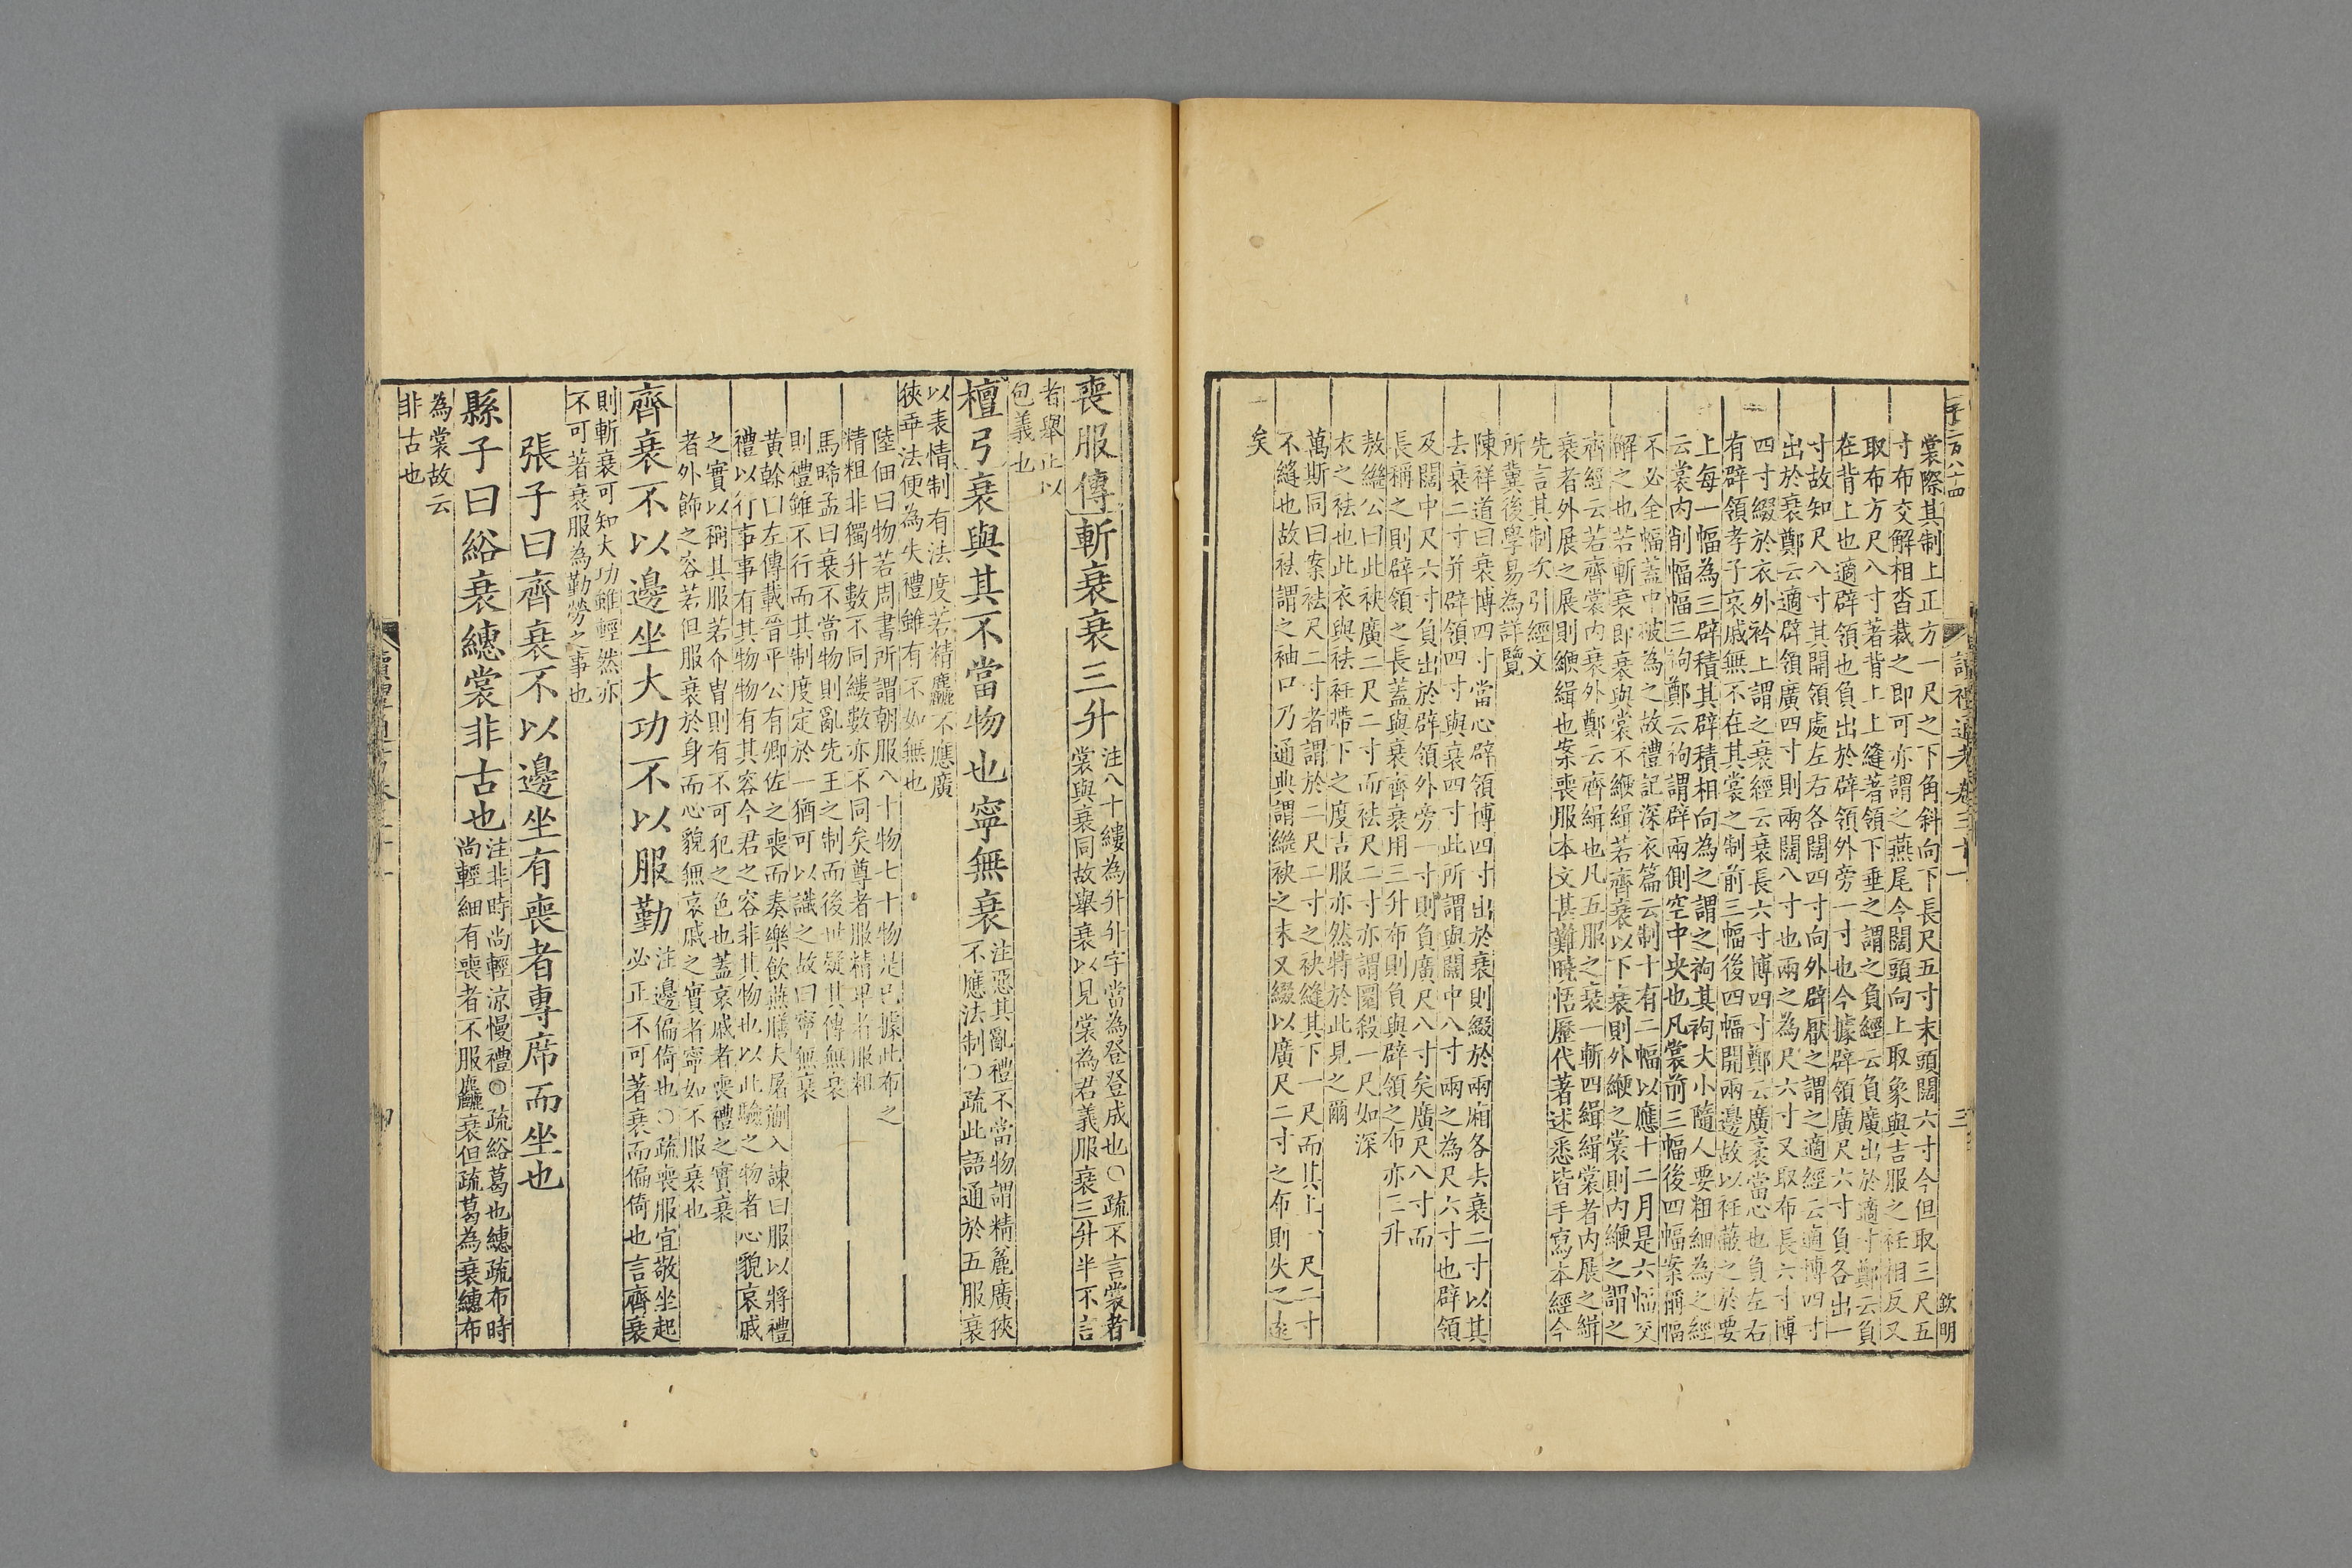 裳際其制上正方一尺之下角斜向下長尺五寸末頭闊六寸今但取三尺五
寸布交解相沓裁之即可亦謂之燕尾今闊頭向上取象與吉服之衽相反又
取布方尺八寸著背上上縫著領下垂之謂之負經云負廣出於適寸鄭云負
在背上也適辟領也負出於辟領外旁一寸也今據辟領廣尺六寸負各出一
寸故知尺八寸其開領處左右各闊四寸向外辟厭之謂之適經云適博四寸
出於衰鄭云適辟領廣四寸則兩闊八寸也兩之為尺六寸又取布長六寸博
四寸綴於衣外衿上謂之衰經云衰長六寸博四寸鄭云廣袤當心也負左右
有辟領孝子哀戚無不在其裳之制前三幅後四幅開兩邊故以衽蔽之於要
上每一幅為三辟積其辟積相向為之謂之袧其袧大小隨人要粗細為之經
云裳內削幅幅三袧鄭云袧謂辟兩側空中央也凡裳前三幅後四幅案偁幅
不必全幅蓋中破為之故禮記深衣篇云制十有二幅以應十二月是六幅交
解之也若斬衰即衰與裳不緶緝若齊衰以下衰則外緶之裳則內緶之謂之
齊經云若齊裳內衰外鄭云齊緝也凡五服之衰一斬四緝緝裳者內展之緝
衰者外展之展則緶緝也案喪服本文甚難曉悟歷代著述悉皆手寫本經今
先言其制次引經文
所冀後學易為詳覽
陳祥道曰衰博四寸當心辟領博四寸出於衰則綴於兩廂各去衰二寸以其
去衰二寸并辟領四寸與衰四寸此所謂與闊中八寸兩之為尺六寸也辟領
及闊中尺六寸負出於辟領外旁一寸則負廣尺八寸矣廣尺八寸而
長稱之則辟領之長蓋與衰齊衰用三升布則負與辟領之布亦三升
敖繼公曰此袂廣二尺二寸而袪尺二寸亦謂圜殺一尺如深
衣之袪也此衣與袪衽帶下之度古服亦然特於此見之爾
萬斯同曰案袪尺二寸者謂於二尺二寸之袂縫其下一尺而其上一尺二寸
不縫也故袪謂之袖口乃通典謂繼袂之末又綴以廣尺二寸之布則失之遠
矣
讀禮通考卷三十一
三
欽明
喪服傳斬衰衰三升注八十縷為升升字當為登登成也○疏不言裳者
裳與衰同故舉衰以見裳為君義服衰三升半不言
者舉正以
包義也
檀弓衰與其不當物也寧無衰注惡其亂禮不當物謂精麄廣狹
不應法制○疏此語通於五服衰
以表情制有法度若精麤不應廣
狹乖法便為失禮雖有不如無也
陸佃曰物若周書所謂朝服八十物七十物是已據此布之
精粗非獨升數不同縷數亦不同矣尊者服精卑者服粗
馬晞孟曰衰不當物則亂先王之制而後世疑其傳無衰
則禮雖不行而其制度定於一猶可以識之故曰寧無衰
黃榦曰左傳載晉平公有卿佐之喪而奏樂飲燕膳夫屠蒯入諫曰服以將禮
禮以行事事有其物物有其容今君之容非其物也以此驗之物者心貌哀戚
之實以稱其服若介冑則有不可犯之色也蓋哀戚者喪禮之實衰
者外飾之容若但服衰於身而心貌無哀戚之實者寧如不服衰也
齊衰不以邊坐大功不以服勤注邊偏倚也○疏喪服宜敬坐起
必正不可著衰而偏倚也言齊衰
則斬衰可知大功雖輕然亦
不可著衰服為勤勞之事也
張子曰齊衰不以邊坐有喪者專席而坐也
縣子曰綌衰繐裳非古也注非時尚輕涼慢禮○疏綌葛也繐疏布時
尚輕細有喪者不服麤衰但疏葛為衰繐布
為裳故云
非古也